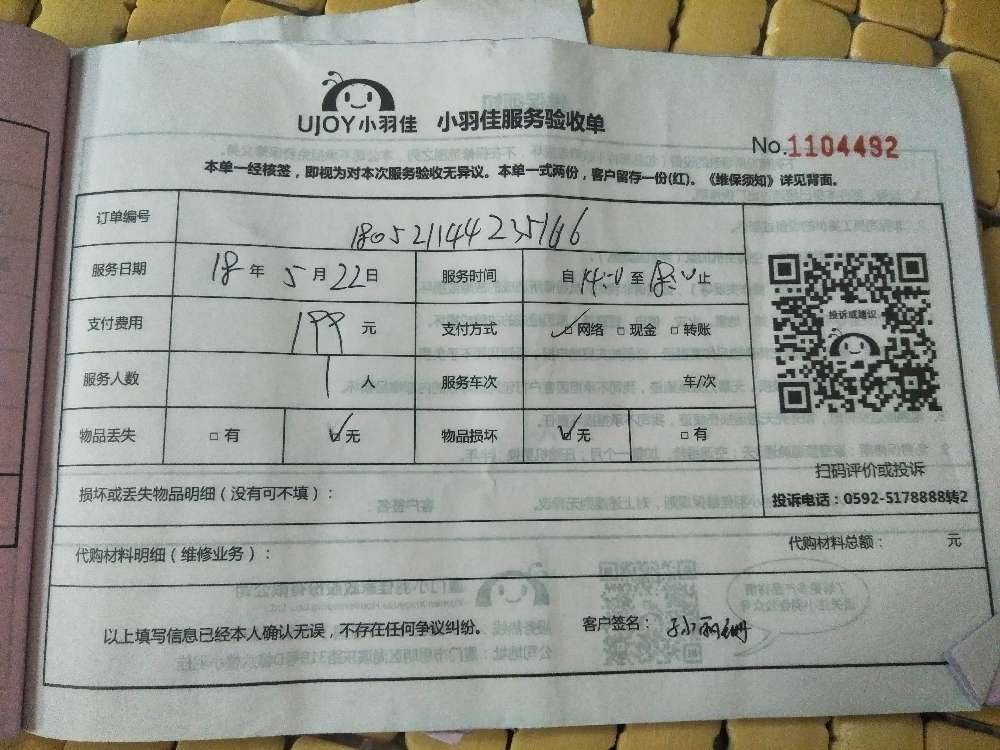 UJOY小羽佳 小羽佳服务验收单
No.1104492
本单一经核签，即视为对本次服务验收无异议。本单一式两份，客户留存一份(红)。《维保须知》详见背面。
订单编号 180521144235166
服务日期 18年5月22日 服务时间 自14:00至 止
支付费用 199元 支付方式 ☑网络 □现金 □转账
服务人数 1人 服务车次 车/次
物品丢失 □有 ☑无 物品损坏 ☑无 □有
投诉或建议
扫码评价或投诉
投诉电话：0592-5178888转2
损坏或丢失物品明细（没有可不填）：
代购材料明细（维修业务）： 代购材料总额： 元
以上填写信息已经本人确认无误，不存在任何争议纠纷。 客户签名：